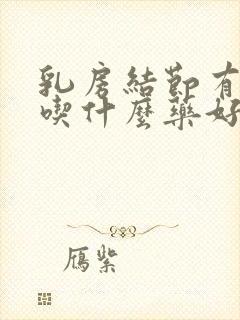 乳房結節有
喫什麼藥好
鴈紫